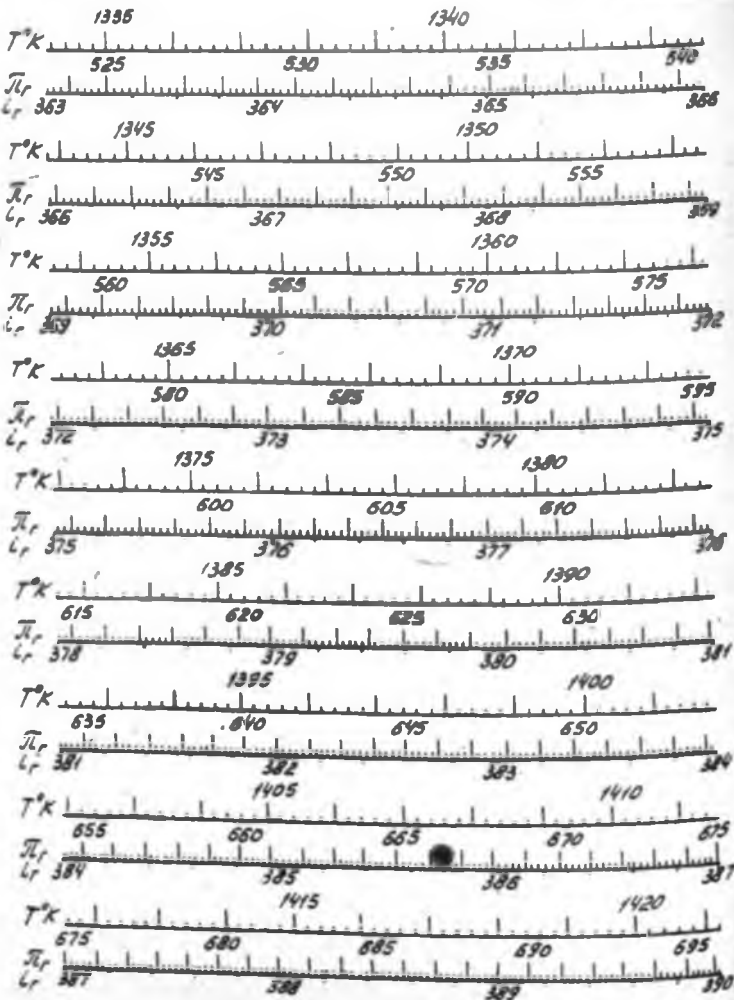 1335 1340
T°K
525 530 535 540
πr
ir 363 364 365 366
1345 1350
T°K
545 550 555
πr
ir 366 367 368 369
1355 1360
T°K
560 565 570 575
πr
ir 369 370 371 372
1365 1370
T°K
580 585 590 595
πr
ir 372 373 374 375
1375 1380
T°K
600 605 610
πr
ir 375 376 377 378
1385 1390
T°K
615 620 625 630
πr
ir 378 379 380 381
1395 1400
T°K
635 640 645 650
πr
ir 381 382 383 384
1405 1410
T°K
655 660 665 670 675
πr
ir 384 385 386 387
1415 1420
T°K
675 680 685 690 695
πr
ir 387 388 389 390